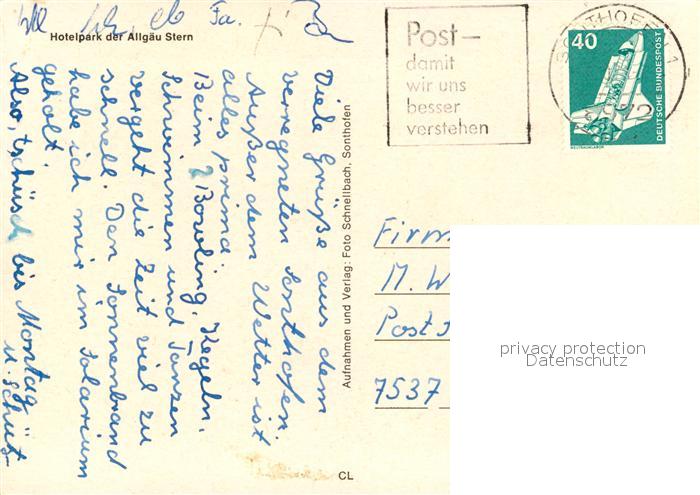 Hotelpark der Allgäu Stern
Fa.
Viele Grüße aus dem
verregneten Sonthofen.
Außer dem Wetter ist
alles prima.
Beim Bowling, Kegeln,
Schwimmen und Tanzen
vergeht die Zeit viel zu
schnell. Den Sonnenbrand
habe ich mir im Solarium
geholt.
Also, tschüsch bis Montag
Aufnahmen und Verlag: Foto Schnellbach, Sonthofen
CL
Post –
damit
wir uns
besser
verstehen
SONTHOFEN 1
40
DEUTSCHE BUNDESPOST
WELTRAUMLABOR
Firm
M. W
Post
7537
privacy protection
Datenschutz